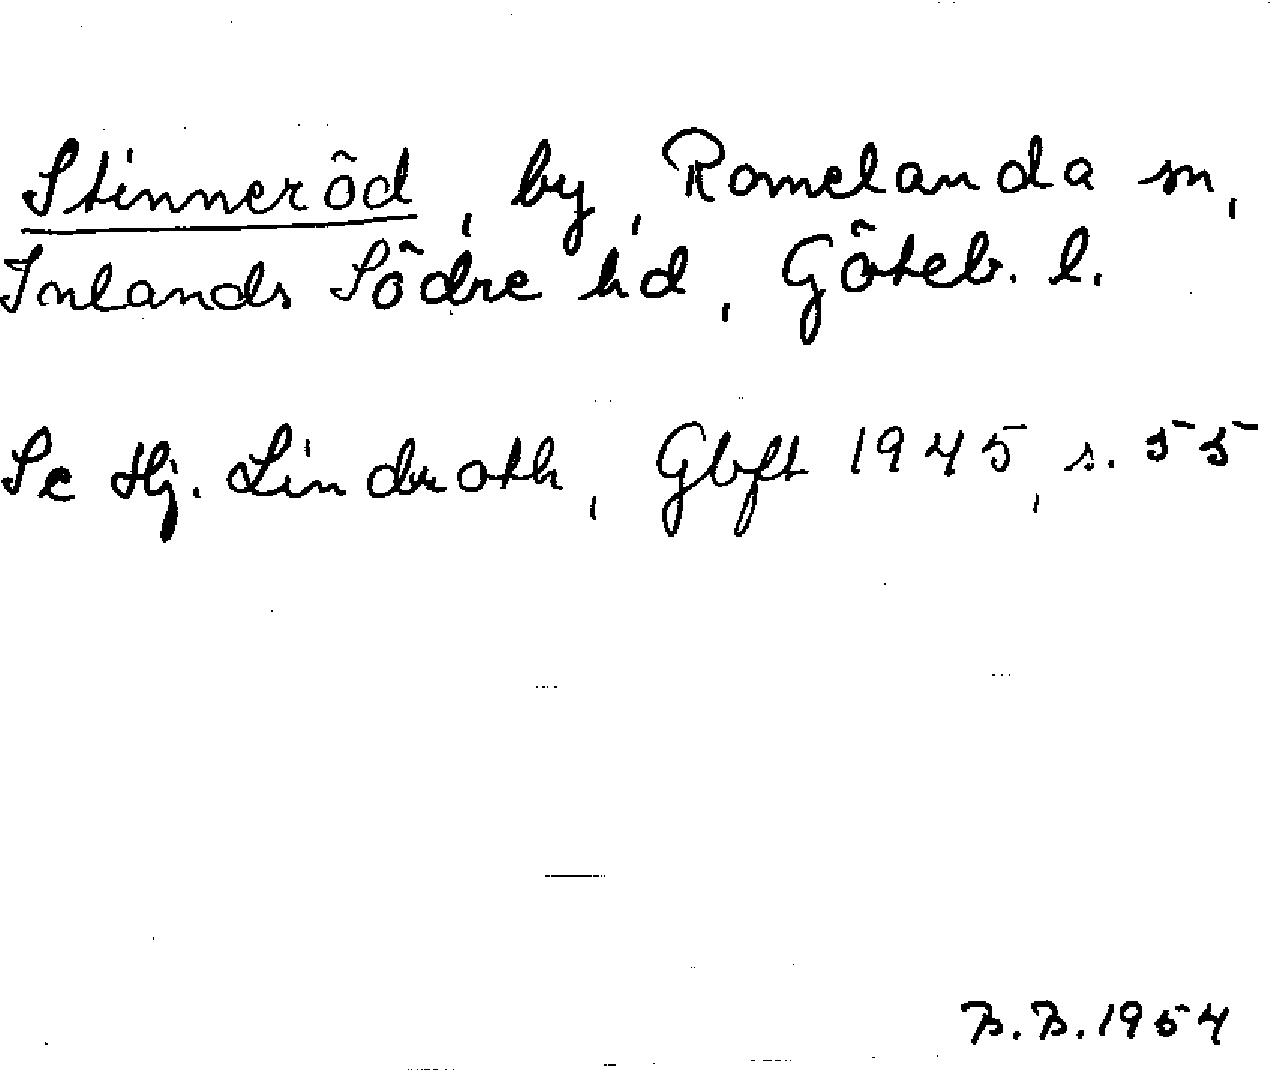 Stinneröd, by, Romelanda sn,
Inlands Södre hd, Göteb. l.
Se Hj. Lindroth, Gbft 1945, s. 55
B.B. 1954